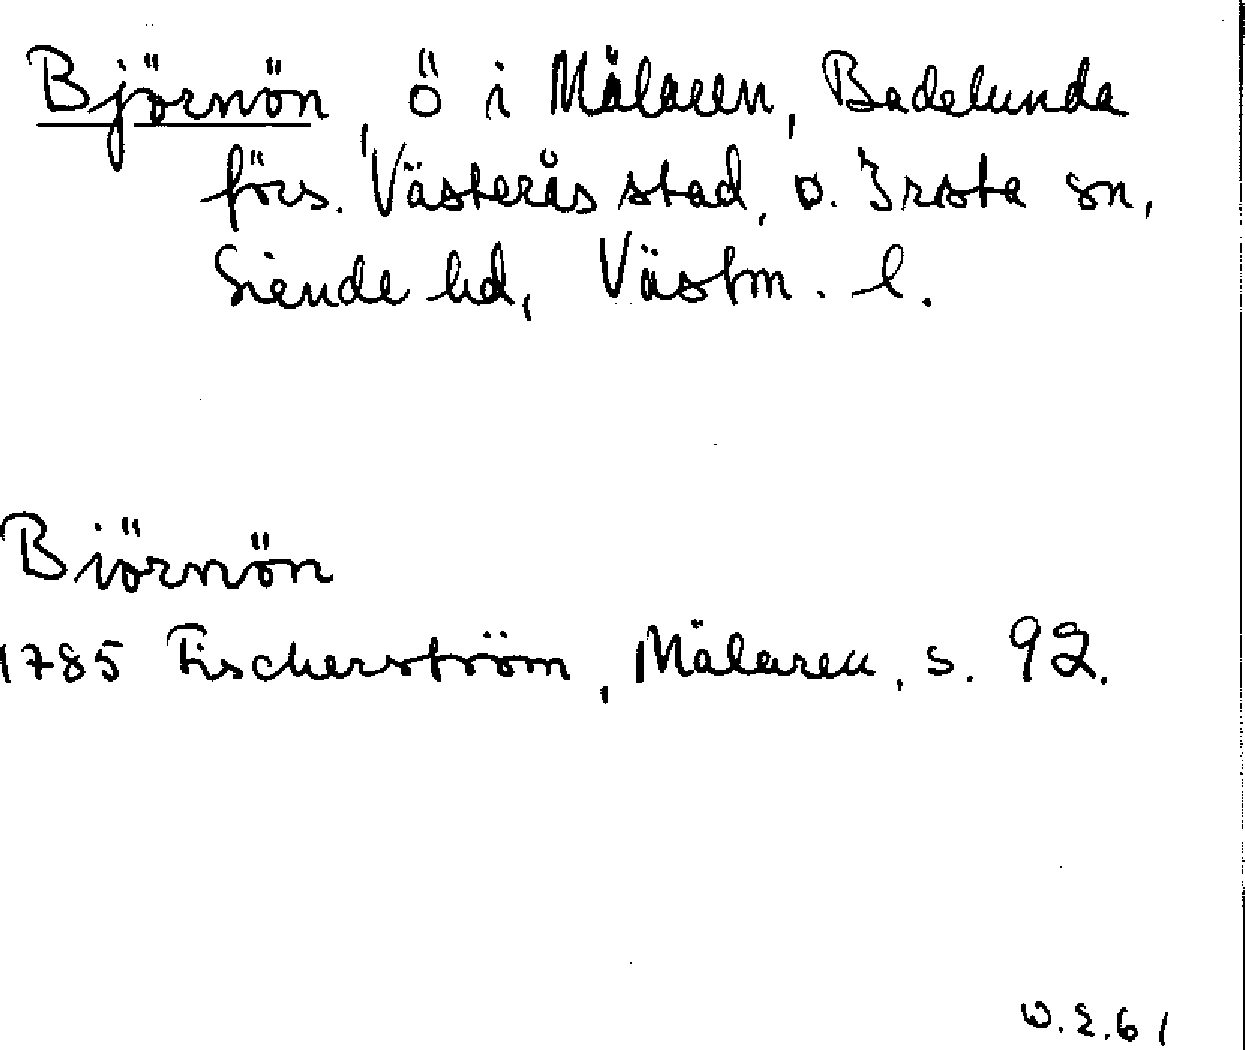 Björnön, ö i Mälaren, Badelunda
förs. Västerås stad, o. Irsta sn,
Siende hd, Västm. l.
Biörnön
1785 Fischerström, Mälaren, s. 92.
W.E.61